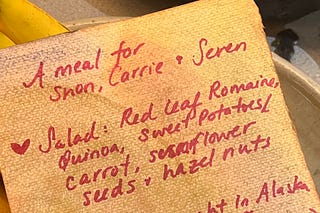 A meal for
Shon, Carrie & Seren
♥ Salad: Red Leaf Romaine,
Quinoa, sweet potatoes/
carrot, sunflower
seeds & hazel nuts
ht In Alaska